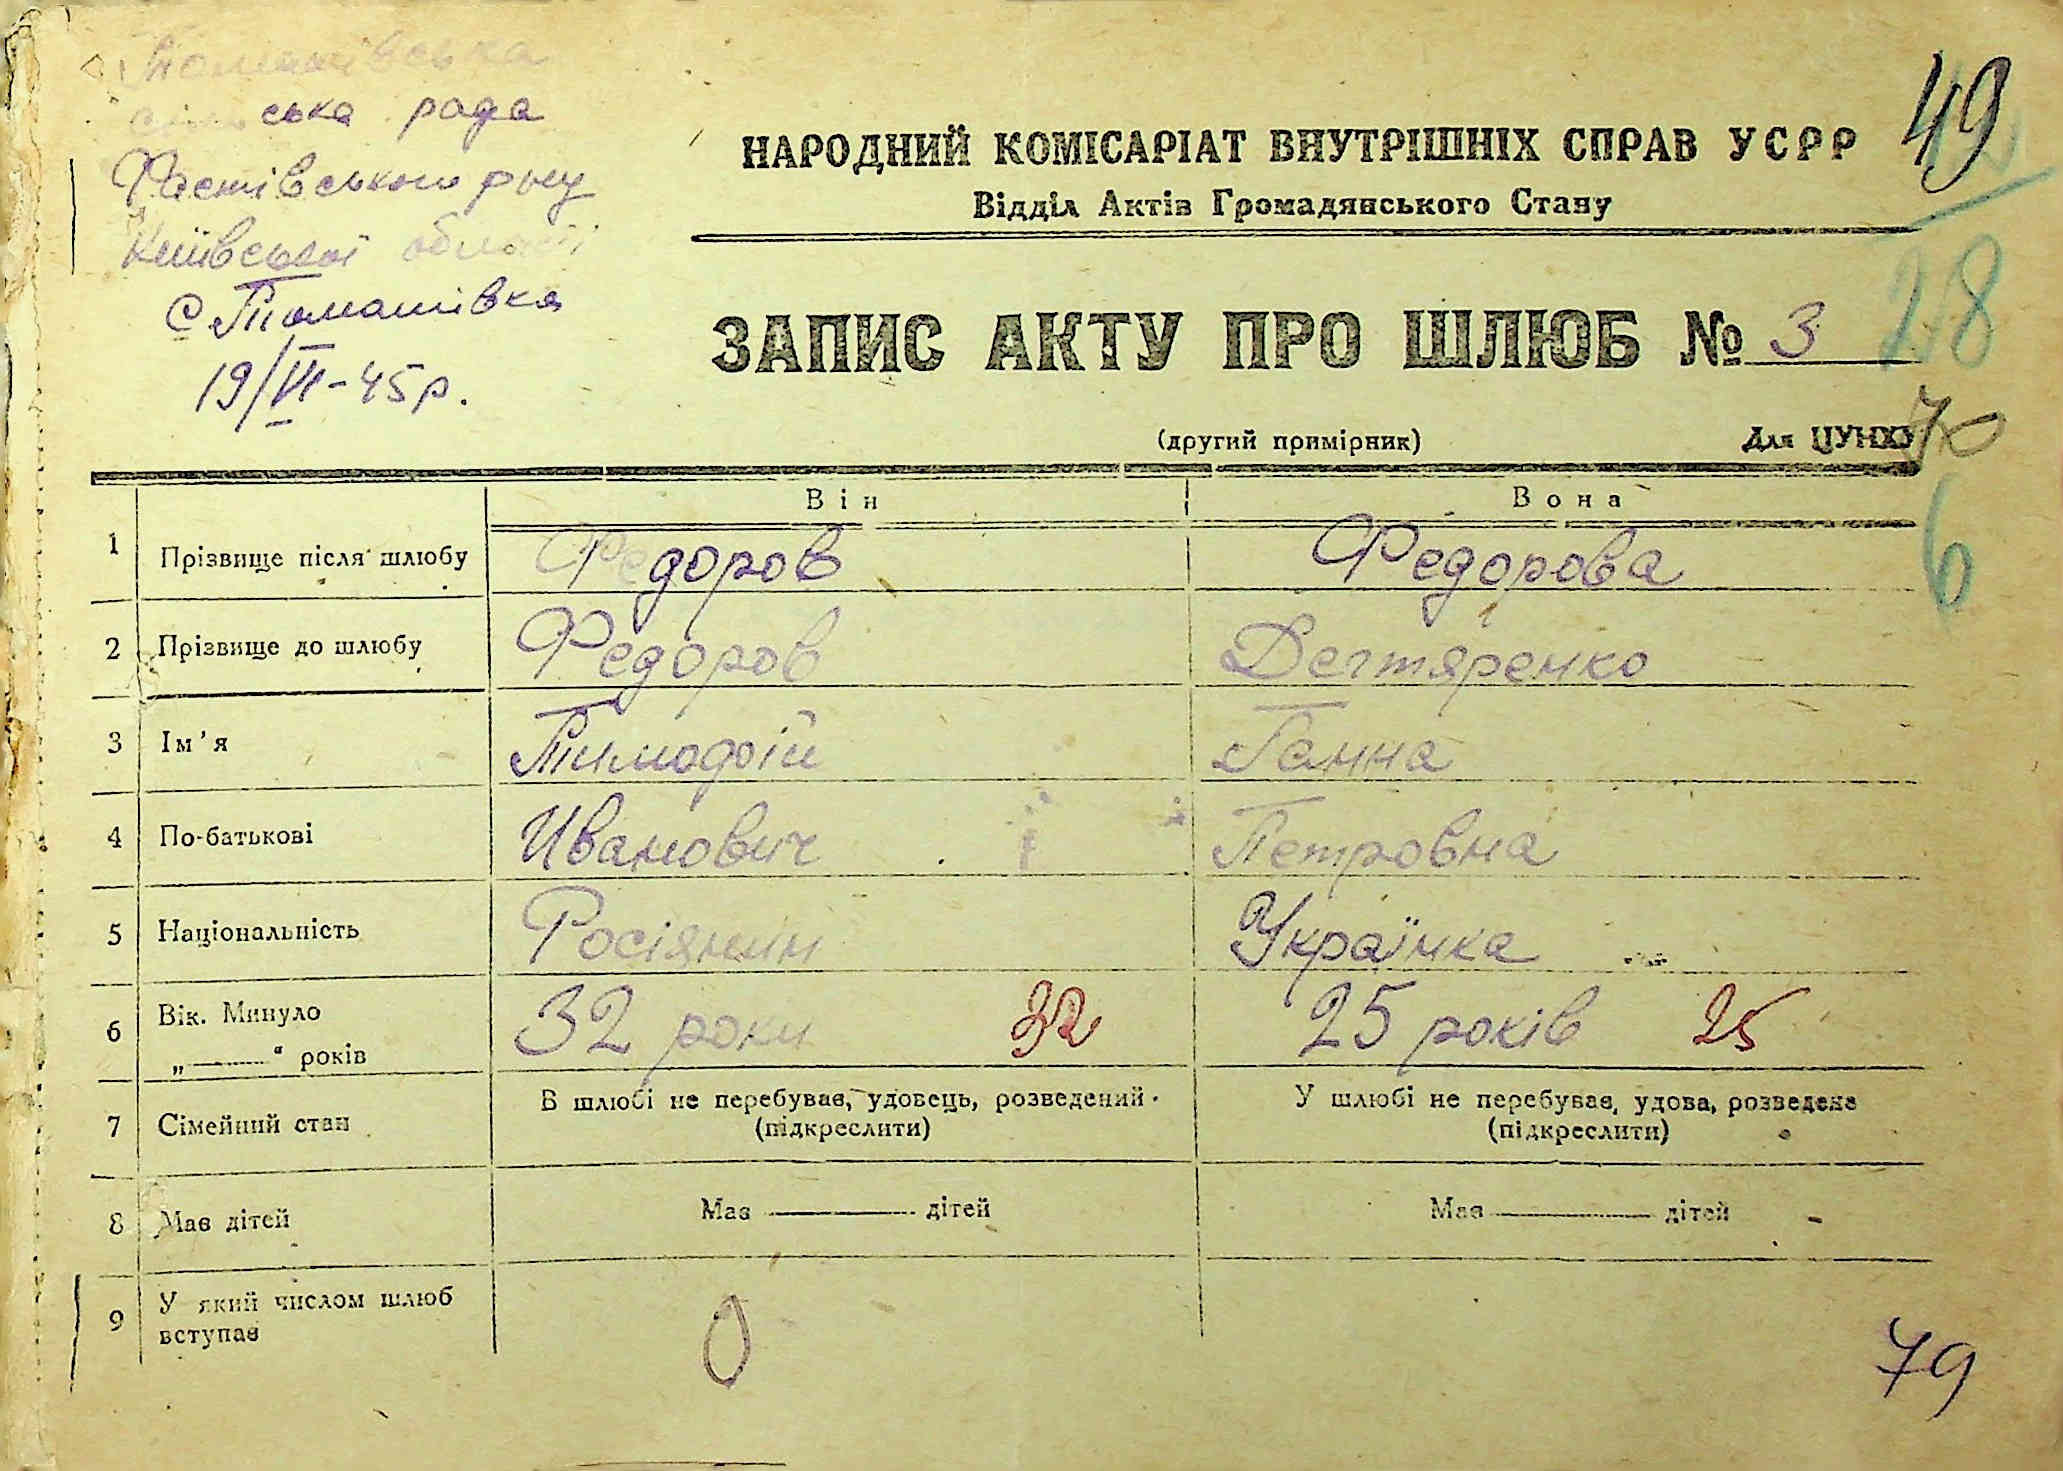 Томашівська
сільська рада
Фастівського р-ну
Київської області
с. Томашівка
19/VI-45р.
49
НАРОДНИЙ КОМІСАРІАТ ВНУТРІШНІХ СПРАВ УСРР
Відділ Актів Громадянського Стану
28
ЗАПИС АКТУ ПРО ШЛЮБ № 3
(другий примірник) Для ЦУНХУ
70
6
Він Вона
1 Прізвище після шлюбу Федоров Федорова
2 Прізвище до шлюбу Федоров Дегтяренко
3 Ім'я Тимофій Ганна
4 По-батькові Иванович Петровна
5 Національність Росіянин Українка
6 Вік. Минуло 32 роки 32 25 років 25
„———" років
7 Сімейний стан В шлюбі не перебував, удовець, розведений. У шлюбі не перебував, удова, розведена
(підкреслити) (підкреслити)
8 Має дітей Має ——— дітей Має ——— дітей
9 У який числом шлюб
вступає
0
79